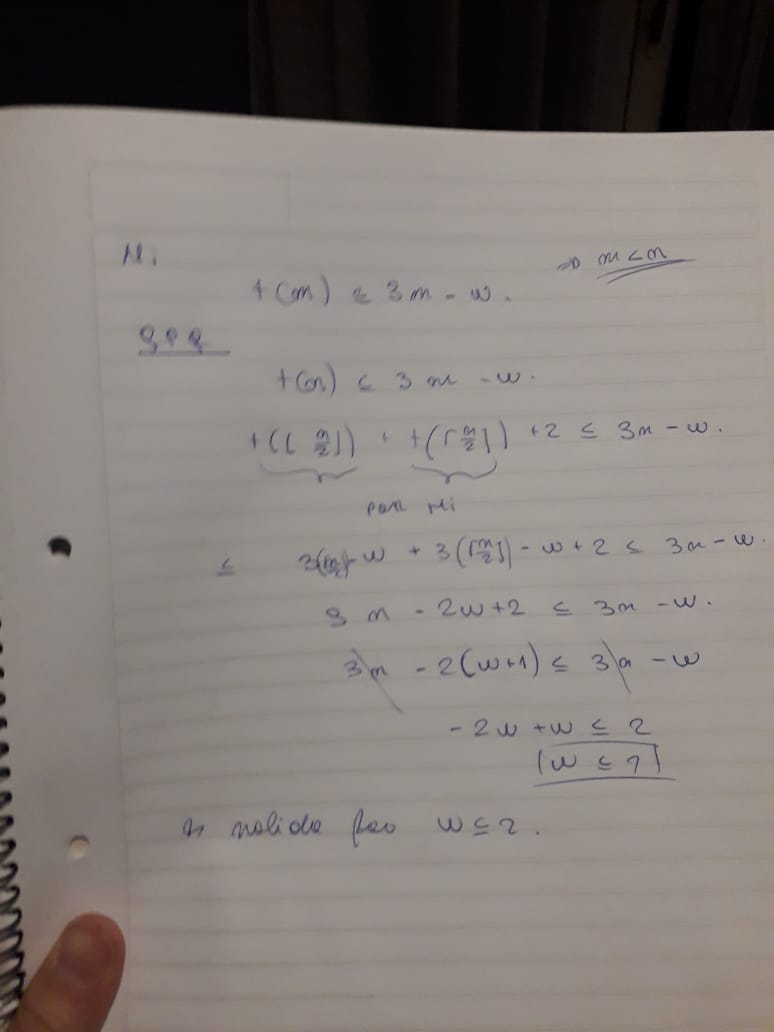 Hi
⇒ m < n
t(m) ≤ 3m - w.
QPQ
t(n) ≤ 3n - w.
t(⌊n/2⌋) + t(⌈n/2⌉) + 2 ≤ 3n - w.
por Hi
≤ 3(⌊n/2⌋) - w + 3(⌈n/2⌉) - w + 2 ≤ 3n - w.
3n - 2w + 2 ≤ 3n - w.
3n - 2(w+1) ≤ 3n - w
-2w + w ≤ 2
w ≤ 2
w ≤ 2.